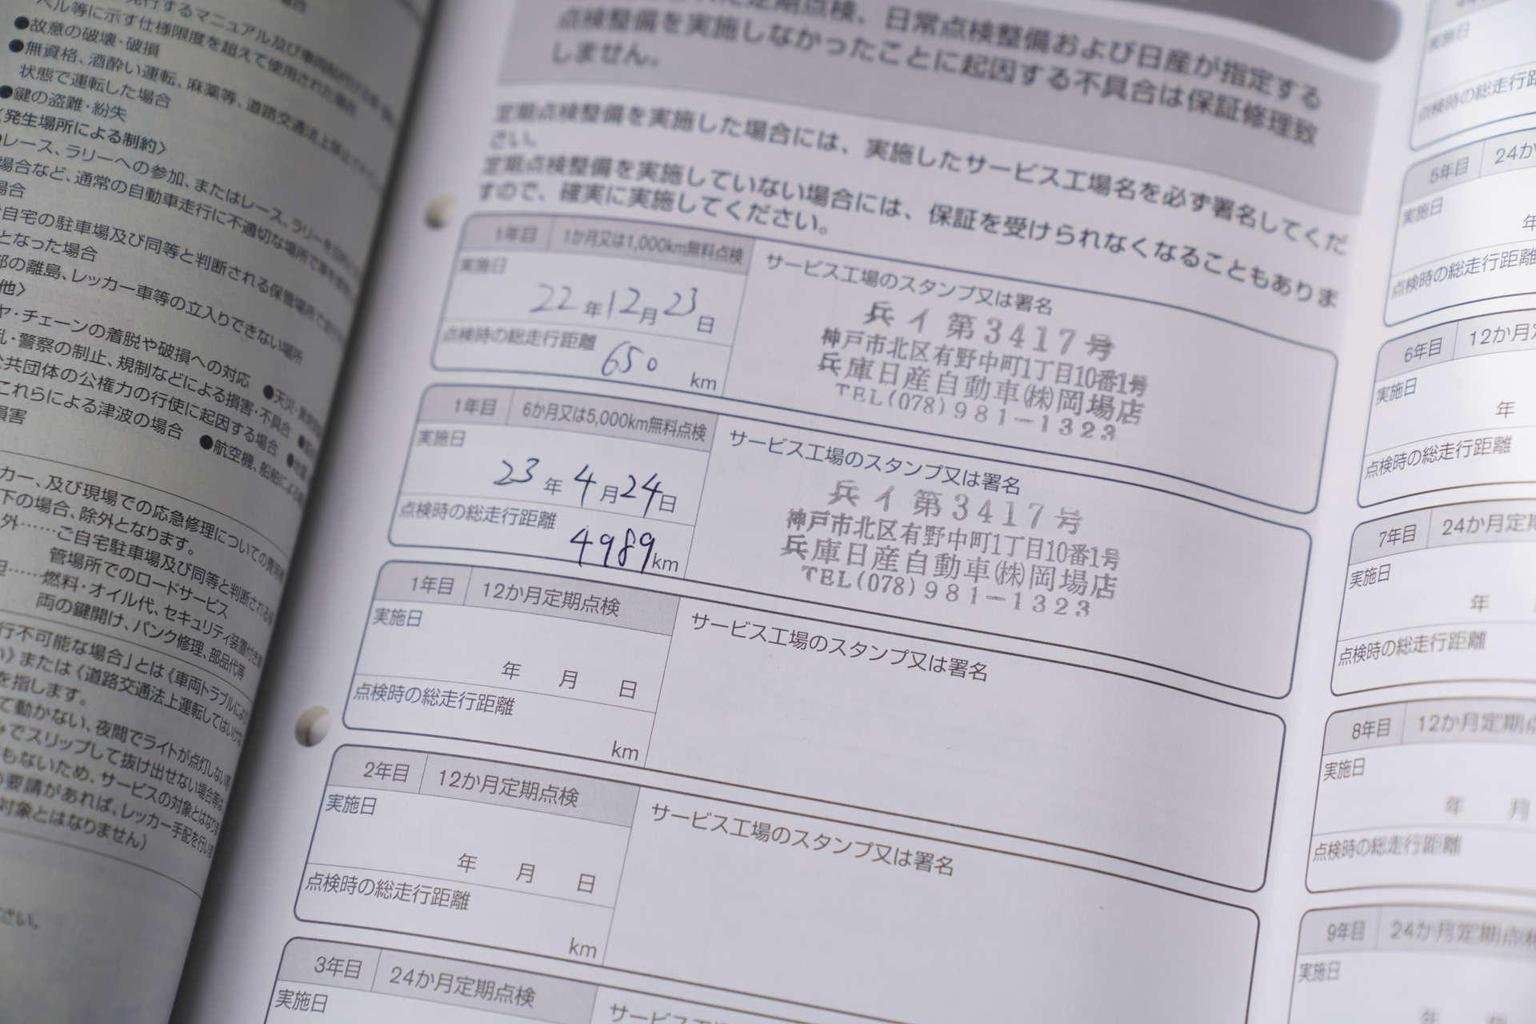 ●故意の破壊・破損
●無資格、酒酔い運転、麻薬等、道路交通法上
状態で運転した場合
●鍵の盗難・紛失
〈発生場所による制約〉
レース、ラリーへの参加、またはレース、ラリーを
場合など、通常の自動車走行に不適切な場所で
場合
自宅の駐車場及び同等と判断される保管場所で
となった場合
部の離島、レッカー車等の立入りできない場所
他〉
ヤ・チェーンの着脱や破損への対応
・警察の制止、規制などによる損害・不具合
公共団体の公権力の行使に起因する場合
これらによる津波の場合 ●航空機、船舶による
損害
カー、及び現場での応急修理についての費用
下の場合、除外となります。
外……ご自宅駐車場及び同等と判断される保
管場所でのロードサービス
燃料・オイル代、セキュリティ装置付き車
両の鍵開け、パンク修理、部品代等
行不可能な場合」とは《車両トラブルにより
い》または《道路交通法上運転してはいけな
を指します。
て動かない、夜間でライトが点灯しない
でスリップして抜け出せない場合等は
もないため、サービスの対象とはなりま
要請があれば、レッカー手配を行いま
対象とはなりません）
さい。
定期点検、日常点検整備および日産が指定する
点検整備を実施しなかったことに起因する不具合は保証修理致
しません。
定期点検整備を実施した場合には、実施したサービス工場名を必ず署名してくだ
さい。
定期点検整備を実施していない場合には、保証を受けられなくなることもありま
すので、確実に実施してください。
1年目 1か月又は1,000km無料点検
実施日
22年12月23日
点検時の総走行距離
650 km
サービス工場のスタンプ又は署名
兵イ第3417号
神戸市北区有野中町1丁目10番1号
兵庫日産自動車(株)岡場店
TEL(078)981-1323
1年目 6か月又は5,000km無料点検
実施日
23年4月24日
点検時の総走行距離
4989km
サービス工場のスタンプ又は署名
兵イ第3417号
神戸市北区有野中町1丁目10番1号
兵庫日産自動車(株)岡場店
TEL(078)981-1323
1年目 12か月定期点検
実施日
年 月 日
点検時の総走行距離
km
サービス工場のスタンプ又は署名
2年目 12か月定期点検
実施日
年 月 日
点検時の総走行距離
km
サービス工場のスタンプ又は署名
3年目 24か月定期点検
実施日
サービス工場のスタンプ又は
実施日
点検時の総走行距
5年目 24か
実施日
年
点検時の総走行距離
6年目 12か月
実施日
年
点検時の総走行距離
7年目 24か月定
実施日
年
点検時の総走行距離
8年目 12か月定期点
実施日
年 月
点検時の総走行距離
9年目 24か月定期点検
実施日
年 月